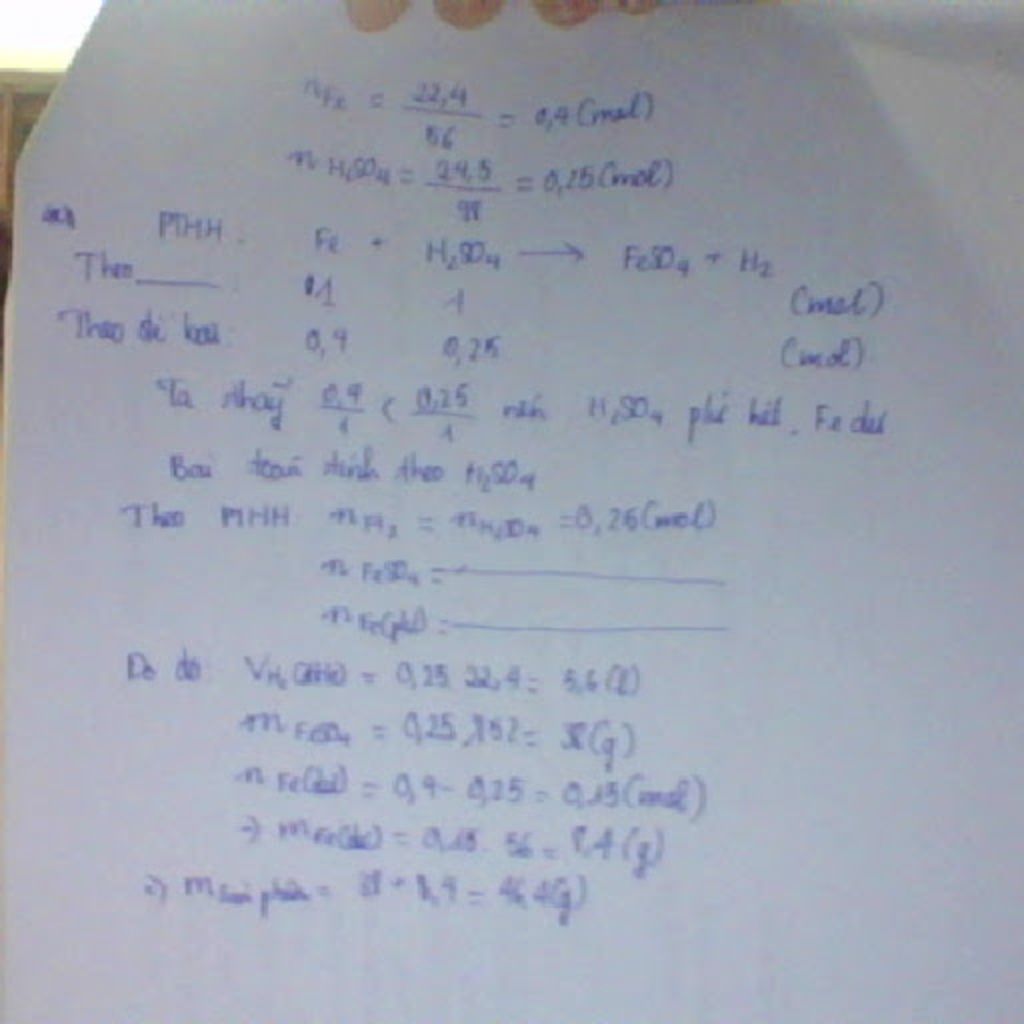 nFe = 22,4/56 = 0,4 (mol)
nH2SO4 = 24,5/98 = 0,25 (mol)
PTHH. Fe + H2SO4 → FeSO4 + H2
Theo 1 1 (mol)
Theo đề bài 0,4 0,25 (mol)
Ta thấy 0,4/1 < 0,25/1 nên H2SO4 pứ hết, Fe dư
Bài toán tính theo H2SO4
Theo PTHH nH2 = nH2SO4 = 0,25 (mol)
nFeSO4 =
nFe(pứ) =
Do đó VH2(đktc) = 0,25.22,4 = 5,6 (l)
mFeSO4 = 0,25.152 = 38 (g)
nFe(dư) = 0,4 - 0,25 = 0,15 (mol)
=> mFe(dư) = 0,15.56 = 8,4 (g)
=> m = 38 + 8,4 = 46,4 (g)